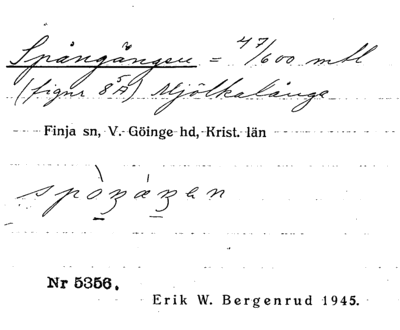 Spångången = 47/600 mtl
(figur 8⁵A) Mjölkalånga
Finja sn, V. Göinge hd, Krist. län
spòŋáŋen
Nr 5356.
Erik W. Bergenrud 1945.